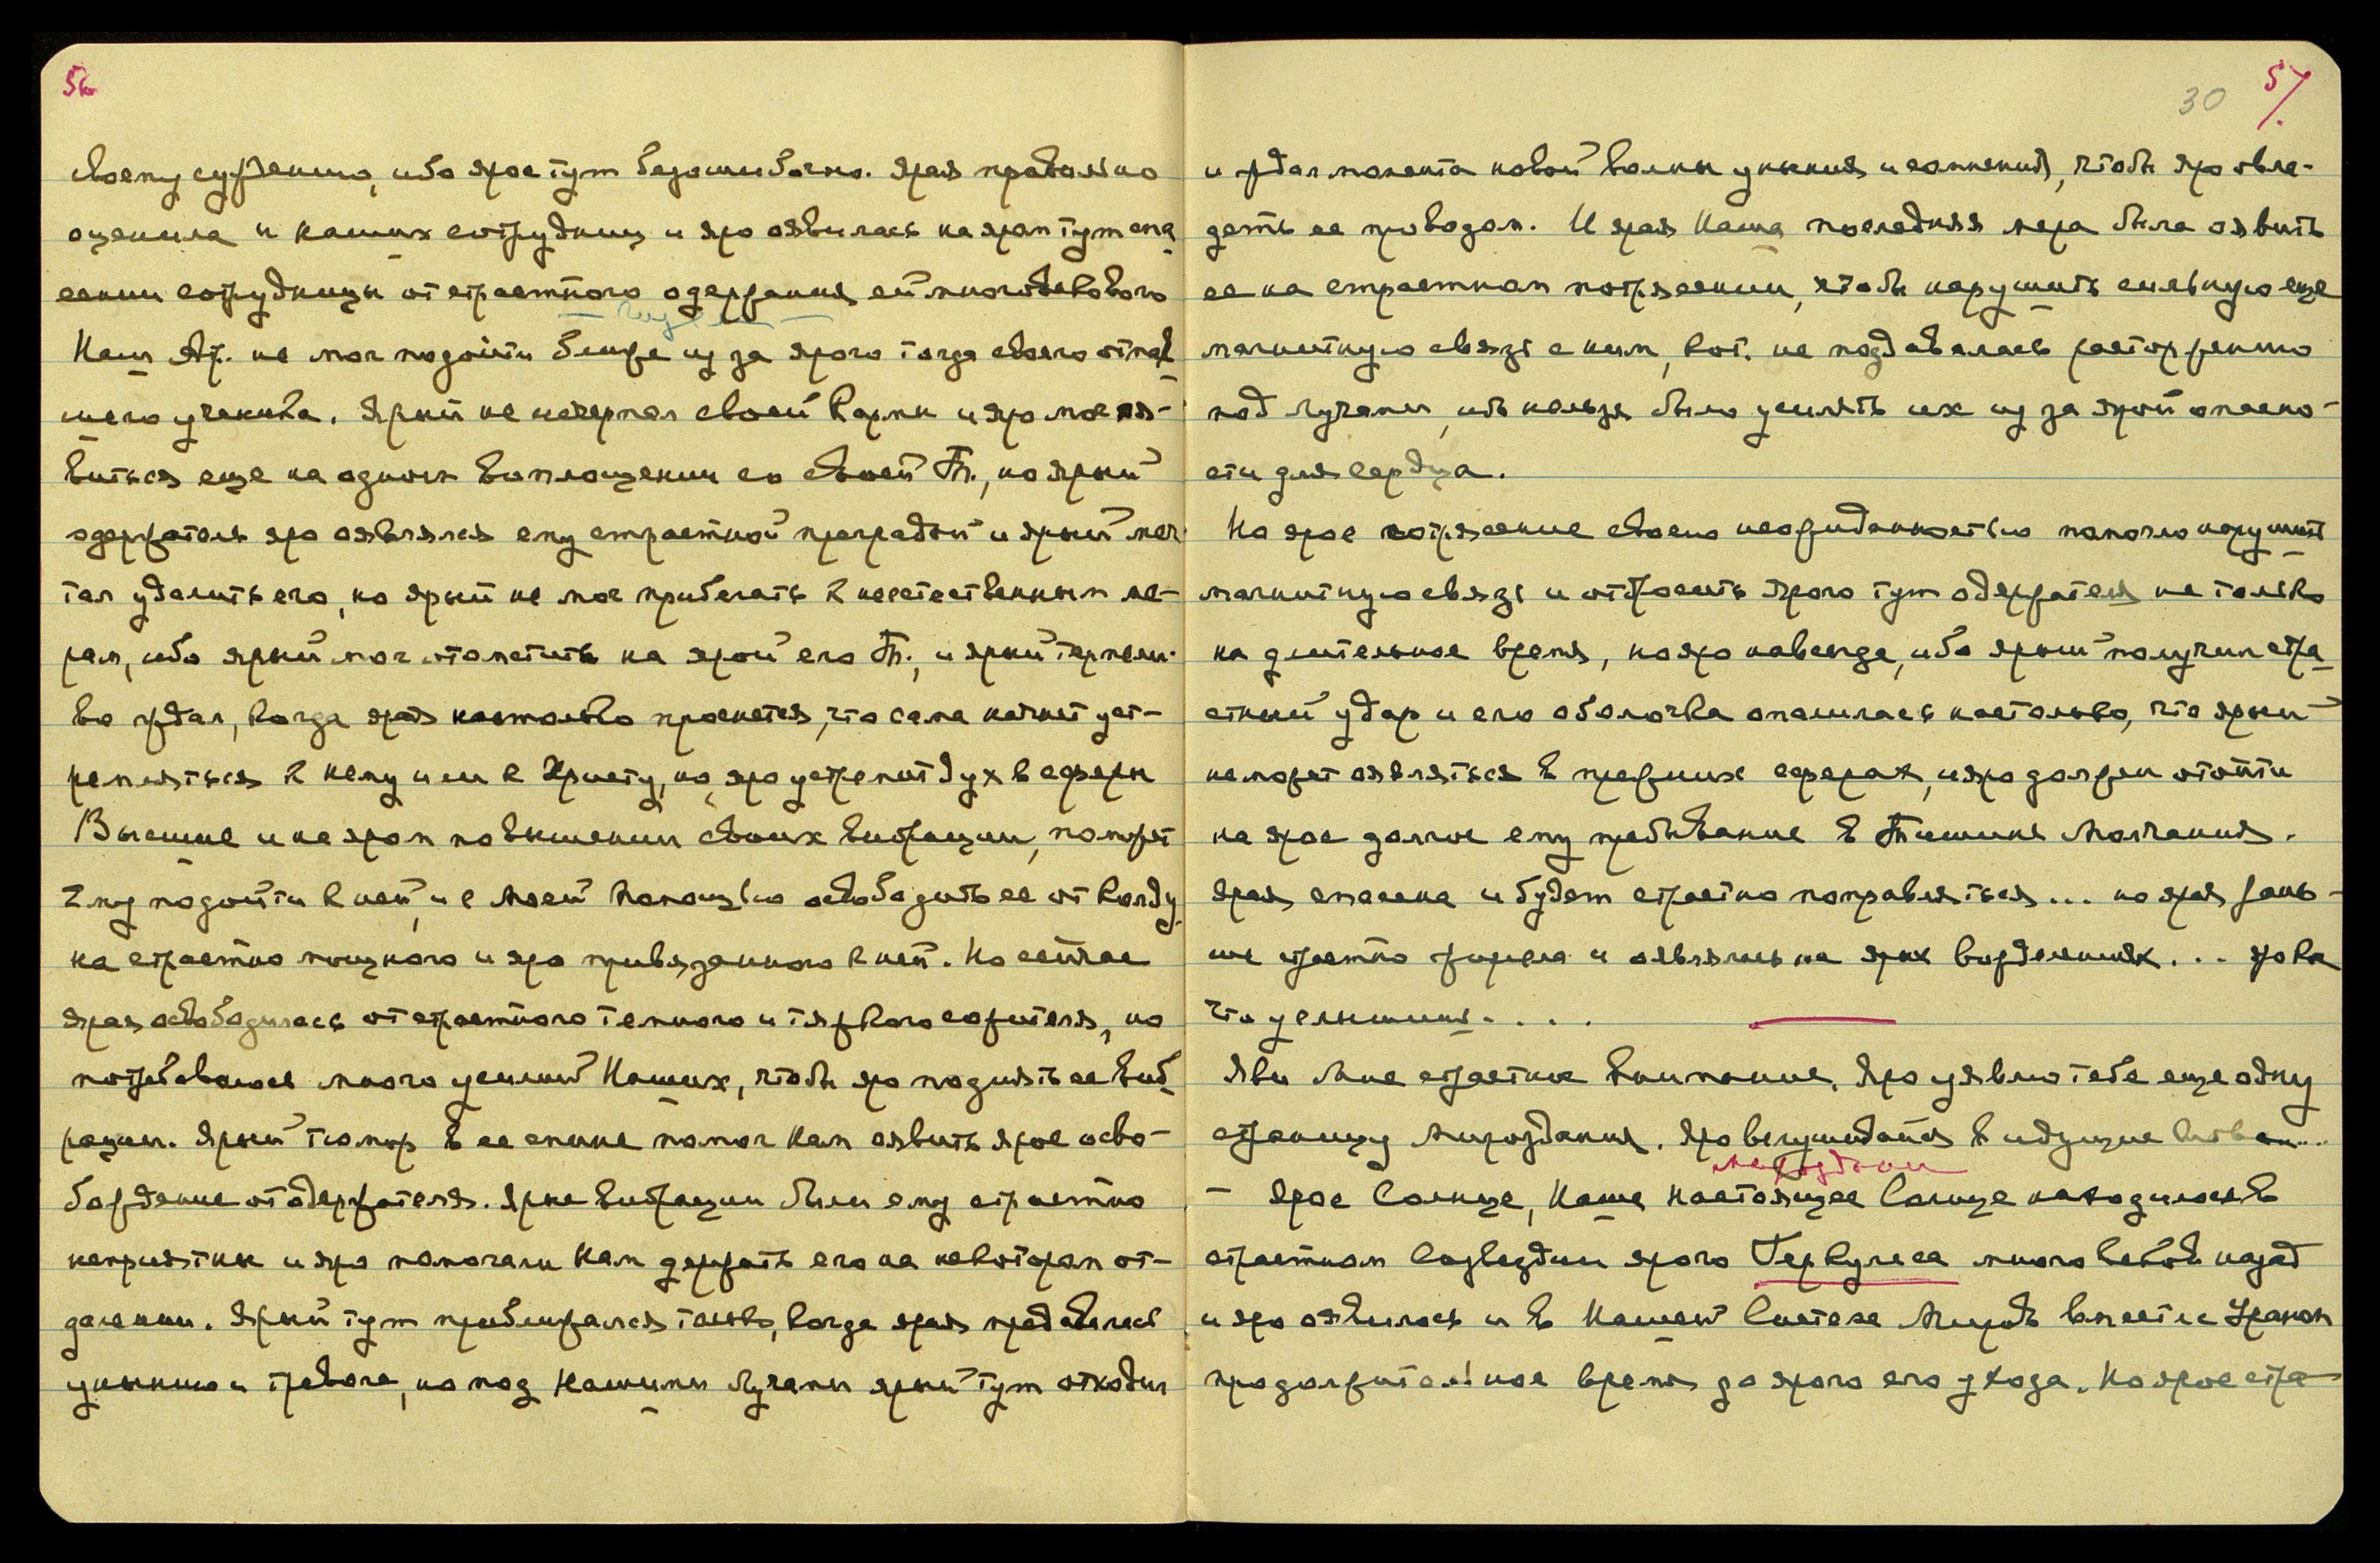 56
своему суждению, ибо ярое тут безошибочно. Ярая правильно
оценила и наших сотрудниц и яро оявилась на яром тут спа
сении сотрудницы от страстного одержания ей многовекового
Наш Др. не мог подойти ближе из за ярого тогда своего отпав
шего ученика. Ярый не исчерпал своей кармы и яро мог яв-
виться еще на одном воплощении со своей Тв., но ярый
одержатель яро оявлялся ему страстной преградой и ярый меч
тал удалить его, но ярый не мог прибегать к неестественным ме-
рам, ибо ярый мог отомстить на ярой его Тв., и ярый терпели-
во ждал, когда ярая настолько проснется, что сама начнет уст-
ремляться к нему или к Христу, но яро устремит дух в сферы
Высшие и на яром повышении своих вибраций, поможет
Ему подойти к ней, и с Моей Помощью освободить ее от колду
на страстно мощного и яро привязанного к ней. Но сейчас
ярая освободилась от страстного темного и тяжкого сожителя, но
потребовалось много усилий Наших, чтобы яро поднять ее виб
рации. Ярый топор в ее спине помог Нам оявить ярое осво-
бождение от одержателя. Ярые вибрации были ему страстно
неприятны и яро помогали Нам держать его на некотором от-
далении. Ярый тут приближался только, когда ярая предавалась
унынию и тревоге, но под Нашими Лучами ярый тут отходил
30 57.
и ждал момента новой волны уныния и сомнений, чтобы яро овла-
деть ее проводом. И ярая Наша последняя мера была оявить
ее на страстном потрясении, чтобы нарушить сильную еще
магнитную связь с ним, кот. не поддавалась расторжению
под Лучами, ибо нельзя было усилять их из за ярой опасно-
сти для сердца.
Но ярое потрясение своею неожиданностью помогло нарушить
магнитную связь и отбросить ярого тут одержателя не только
на длительное время, но яро навсегда, ибо ярый получил стра
стный удар и его оболочка опалилась настолько, что ярый
не может оявляться в прежних сферах, и яро должен отойти
на ярое долгое ему пребывание в Тишине Молчания.
Ярая спасена и будет страстно поправляться... но ярая рань-
ше страстно и оявлялась на ярых вожделениях...
что услышишь....
Яви Мне страстное внимание, Яро уявлю тебе еще одну
страницу Мироздания. Яро вслушивайся в идущие слова...
мироздание
– Ярое Солнце, Наше Настоящее Солнце находилось в
страстном Созвездии ярого Геркулеса много веков назад
и яро оявилось и в Нашей Системе Миров вместе с Ураном
продолжительное время до ярого его ухода. Но ярое стра